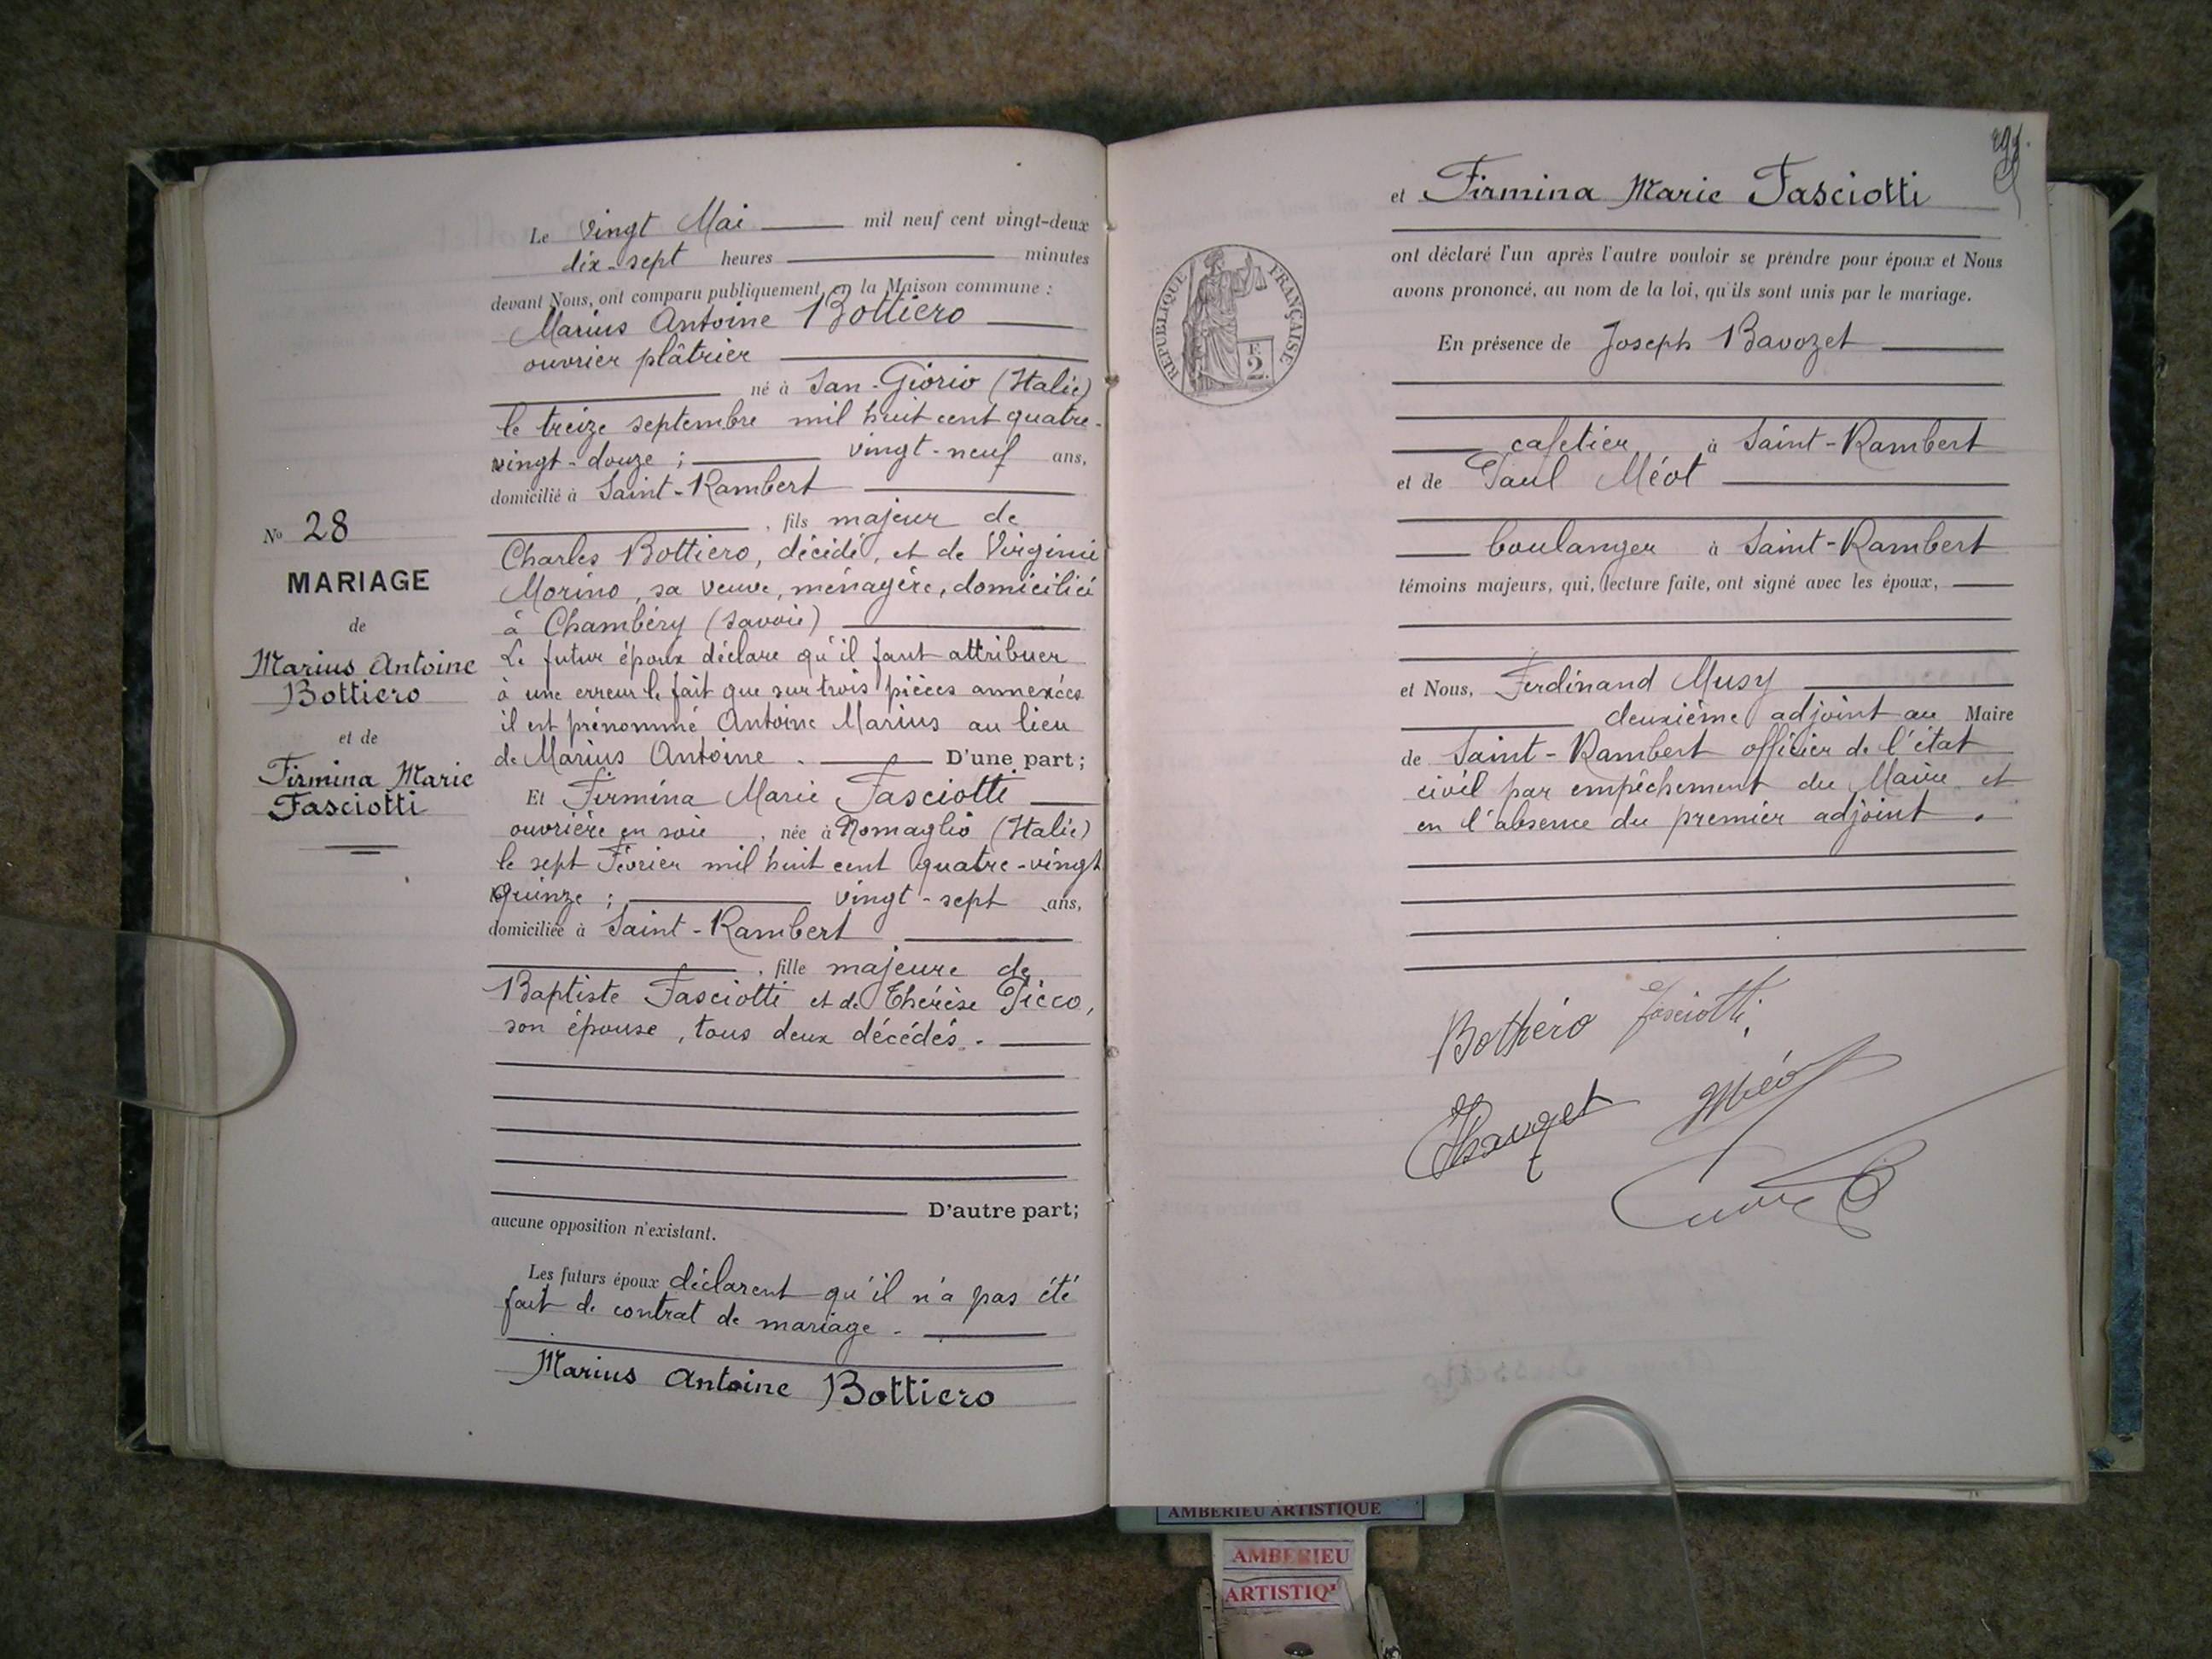 Le vingt Mai mil neuf cent vingt-deux
dix-sept heures minutes
devant Nous, ont comparu publiquement en la Maison commune :
Marius Antoine Bottiero
ouvrier plâtrier
né à San-Giorio (Italie)
le treize septembre mil huit cent quatre-
vingt-douze ; vingt-neuf ans,
domicilié à Saint-Rambert
, fils majeur de
Charles Bottiero, décédé, et de Virginie
Morino, sa veuve, ménagère, domiciliée
à Chambéry (Savoie)
Le futur époux déclare qu'il faut attribuer
à une erreur le fait que sur trois pièces annexées
il est prénommé Antoine Marius au lieu
de Marius Antoine. D'une part;
Et Firmina Marie Fasciotti
ouvrière en soie , née à Nomaglio (Italie)
le sept Février mil huit cent quatre-vingt
quinze ; vingt-sept ans,
domiciliée à Saint-Rambert
, fille majeure de
Baptiste Fasciotti et de Thérèse Picco,
son épouse, tous deux décédés.
D'autre part;
aucune opposition n'existant.
Les futurs époux déclarent qu'il n'a pas été
fait de contrat de mariage.
Marius Antoine Bottiero
No 28
MARIAGE
de
Marius Antoine
Bottiero
et de
Firmina Marie
Fasciotti
et Firmina Marie Fasciotti
ont déclaré l'un après l'autre vouloir se prendre pour époux et Nous
avons prononcé, au nom de la loi, qu'ils sont unis par le mariage.
En présence de Joseph Bavozet
cafetier à Saint-Rambert
et de Paul Méot
boulanger à Saint-Rambert
témoins majeurs, qui, lecture faite, ont signé avec les époux,
et Nous, Ferdinand Musy
deuxième adjoint au Maire
de Saint-Rambert officier de l'état
civil par empêchement du Maire et
en l'absence du premier adjoint.
Bothéro Fasciotti
Bavozet Méot
RÉPUBLIQUE FRANÇAISE
F.
2.
AMBERIEU ARTISTIQUE
AMBERIEU
ARTISTIQ